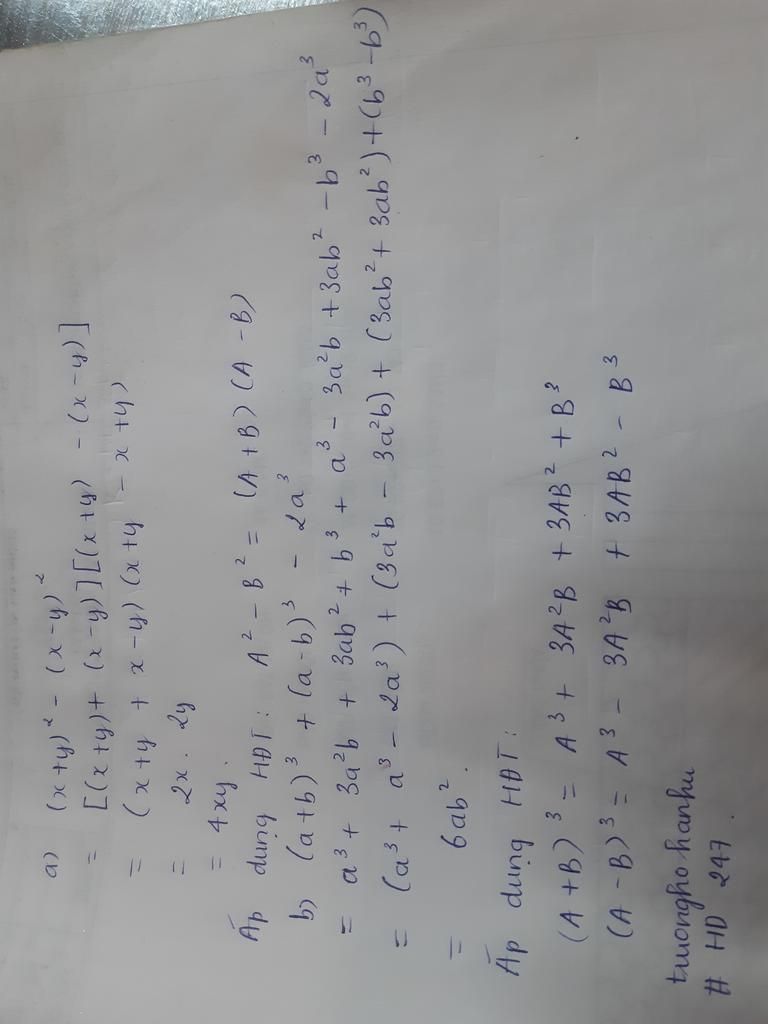 a) (x+y)² - (x-y)²
= [(x+y) + (x-y)][(x+y) - (x-y)]
= (x+y + x-y)(x+y - x+y)
= 2x . 2y
= 4xy.
Áp dụng HĐT: A² - B² = (A+B)(A-B)
b) (a+b)³ + (a-b)³ - 2a³
= a³ + 3a²b + 3ab² + b³ + a³ - 3a²b + 3ab² - b³ - 2a³
= (a³ + a³ - 2a³) + (3a²b - 3a²b) + (3ab² + 3ab²) + (b³ - b³)
= 6ab².
Áp dụng HĐT:
(A+B)³ = A³ + 3A²B + 3AB² + B³
(A-B)³ = A³ - 3A²B + 3AB² - B³
truonghohanhu
# HD 247.